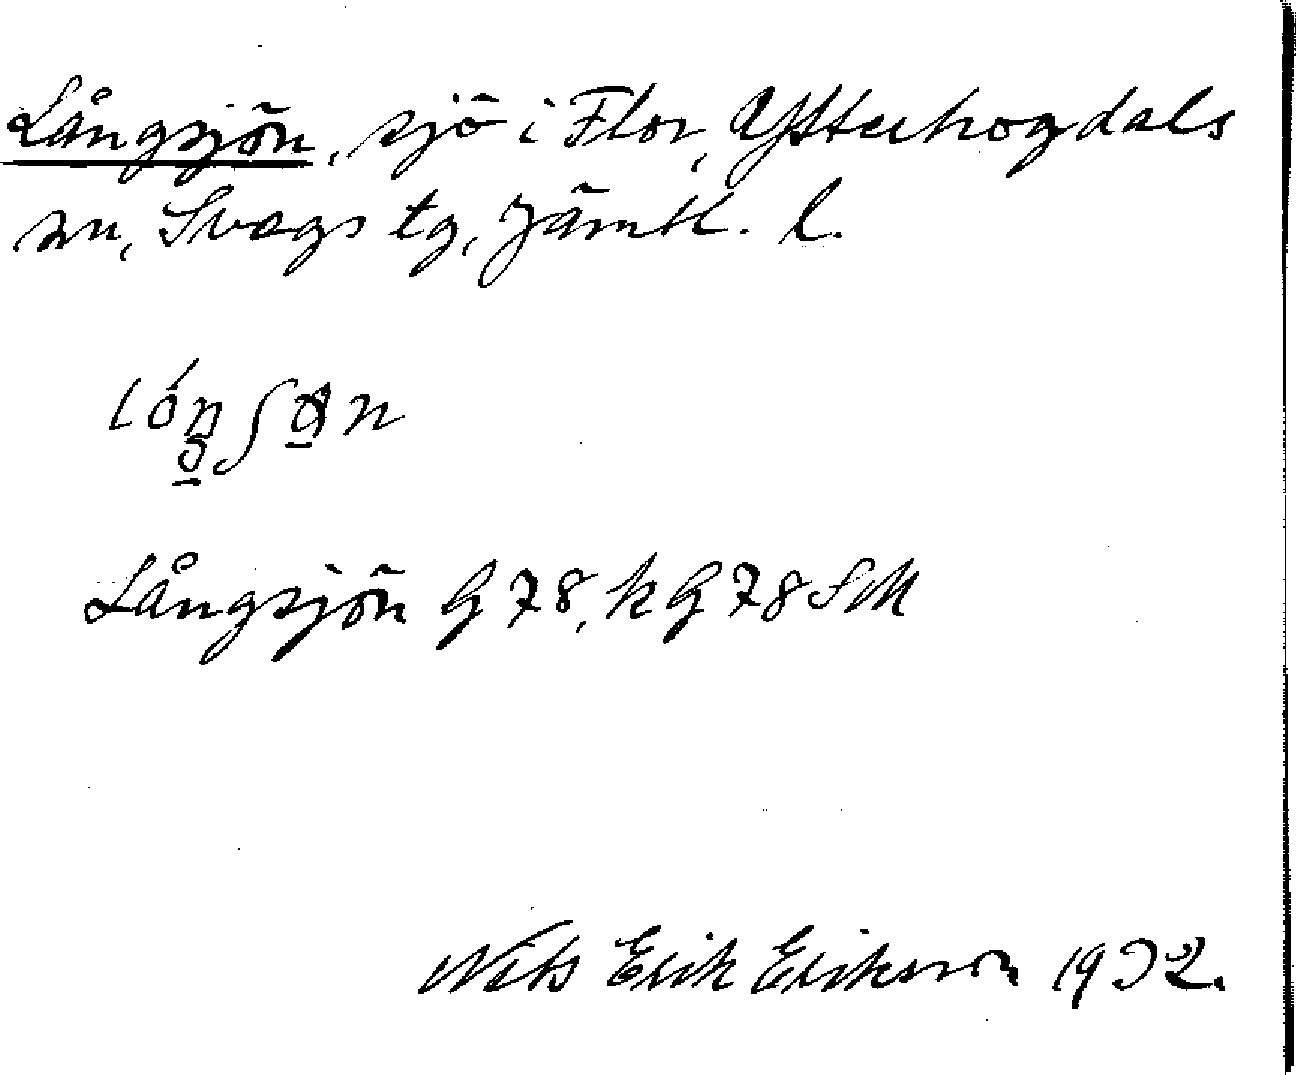 Långsjön, sjö i Flor, Ytterhogdals
sn, Svegs tg, Jämtl. l.
Långsjön G 78, k G 78 SM
Nils Erik Eriksson 1932.